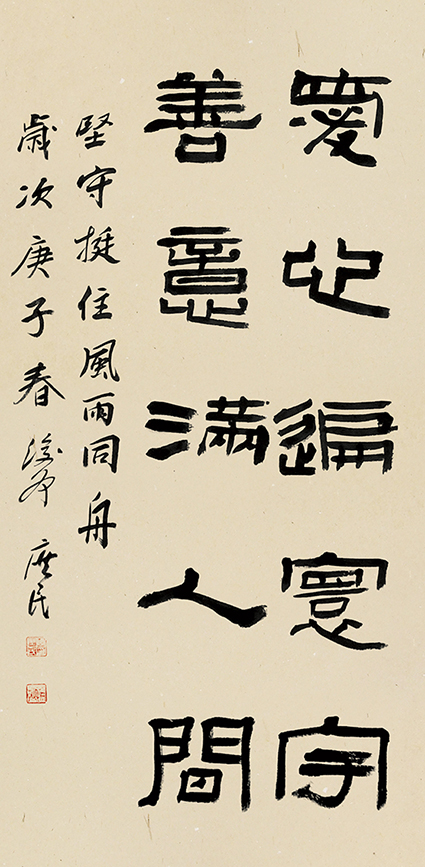 愛心遍寰宇
善意滿人間
堅守挺住風雨同舟
歲次庚子春 庶民